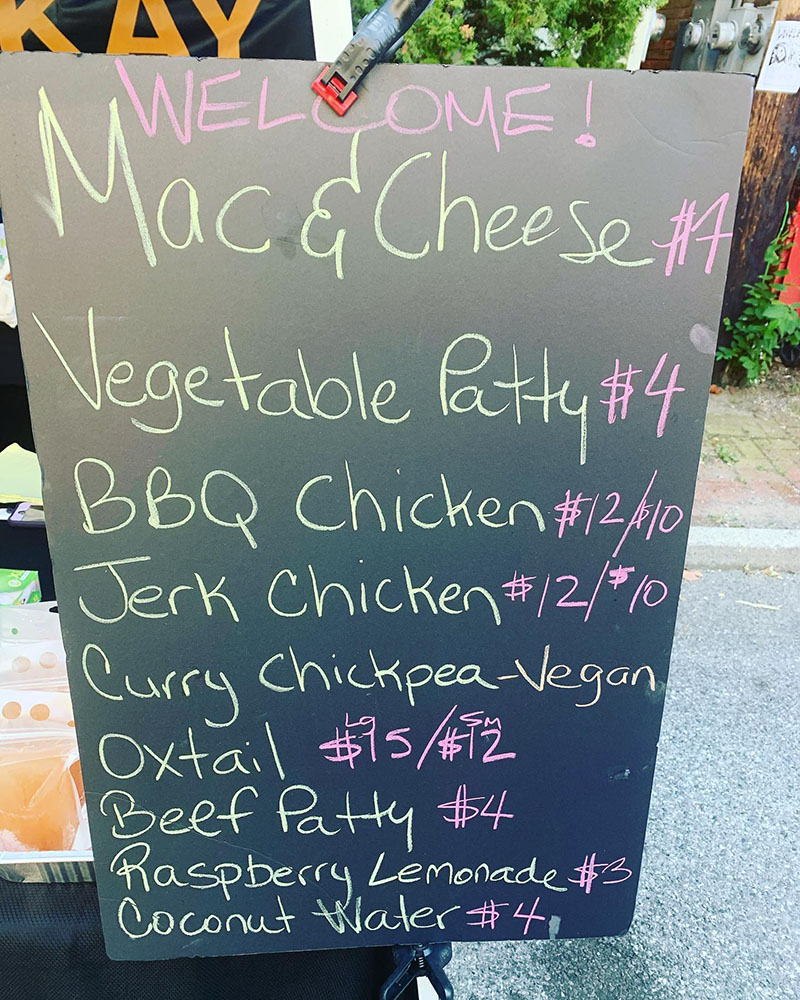 KAY
WELCOME!
Mac & Cheese $4
Vegetable Patty $4
BBQ Chicken $12/$10
Jerk Chicken $12/$10
Curry Chickpea-Vegan
Oxtail Lg $15/Sm $12
Beef Patty $4
Raspberry Lemonade $3
Coconut Water $4